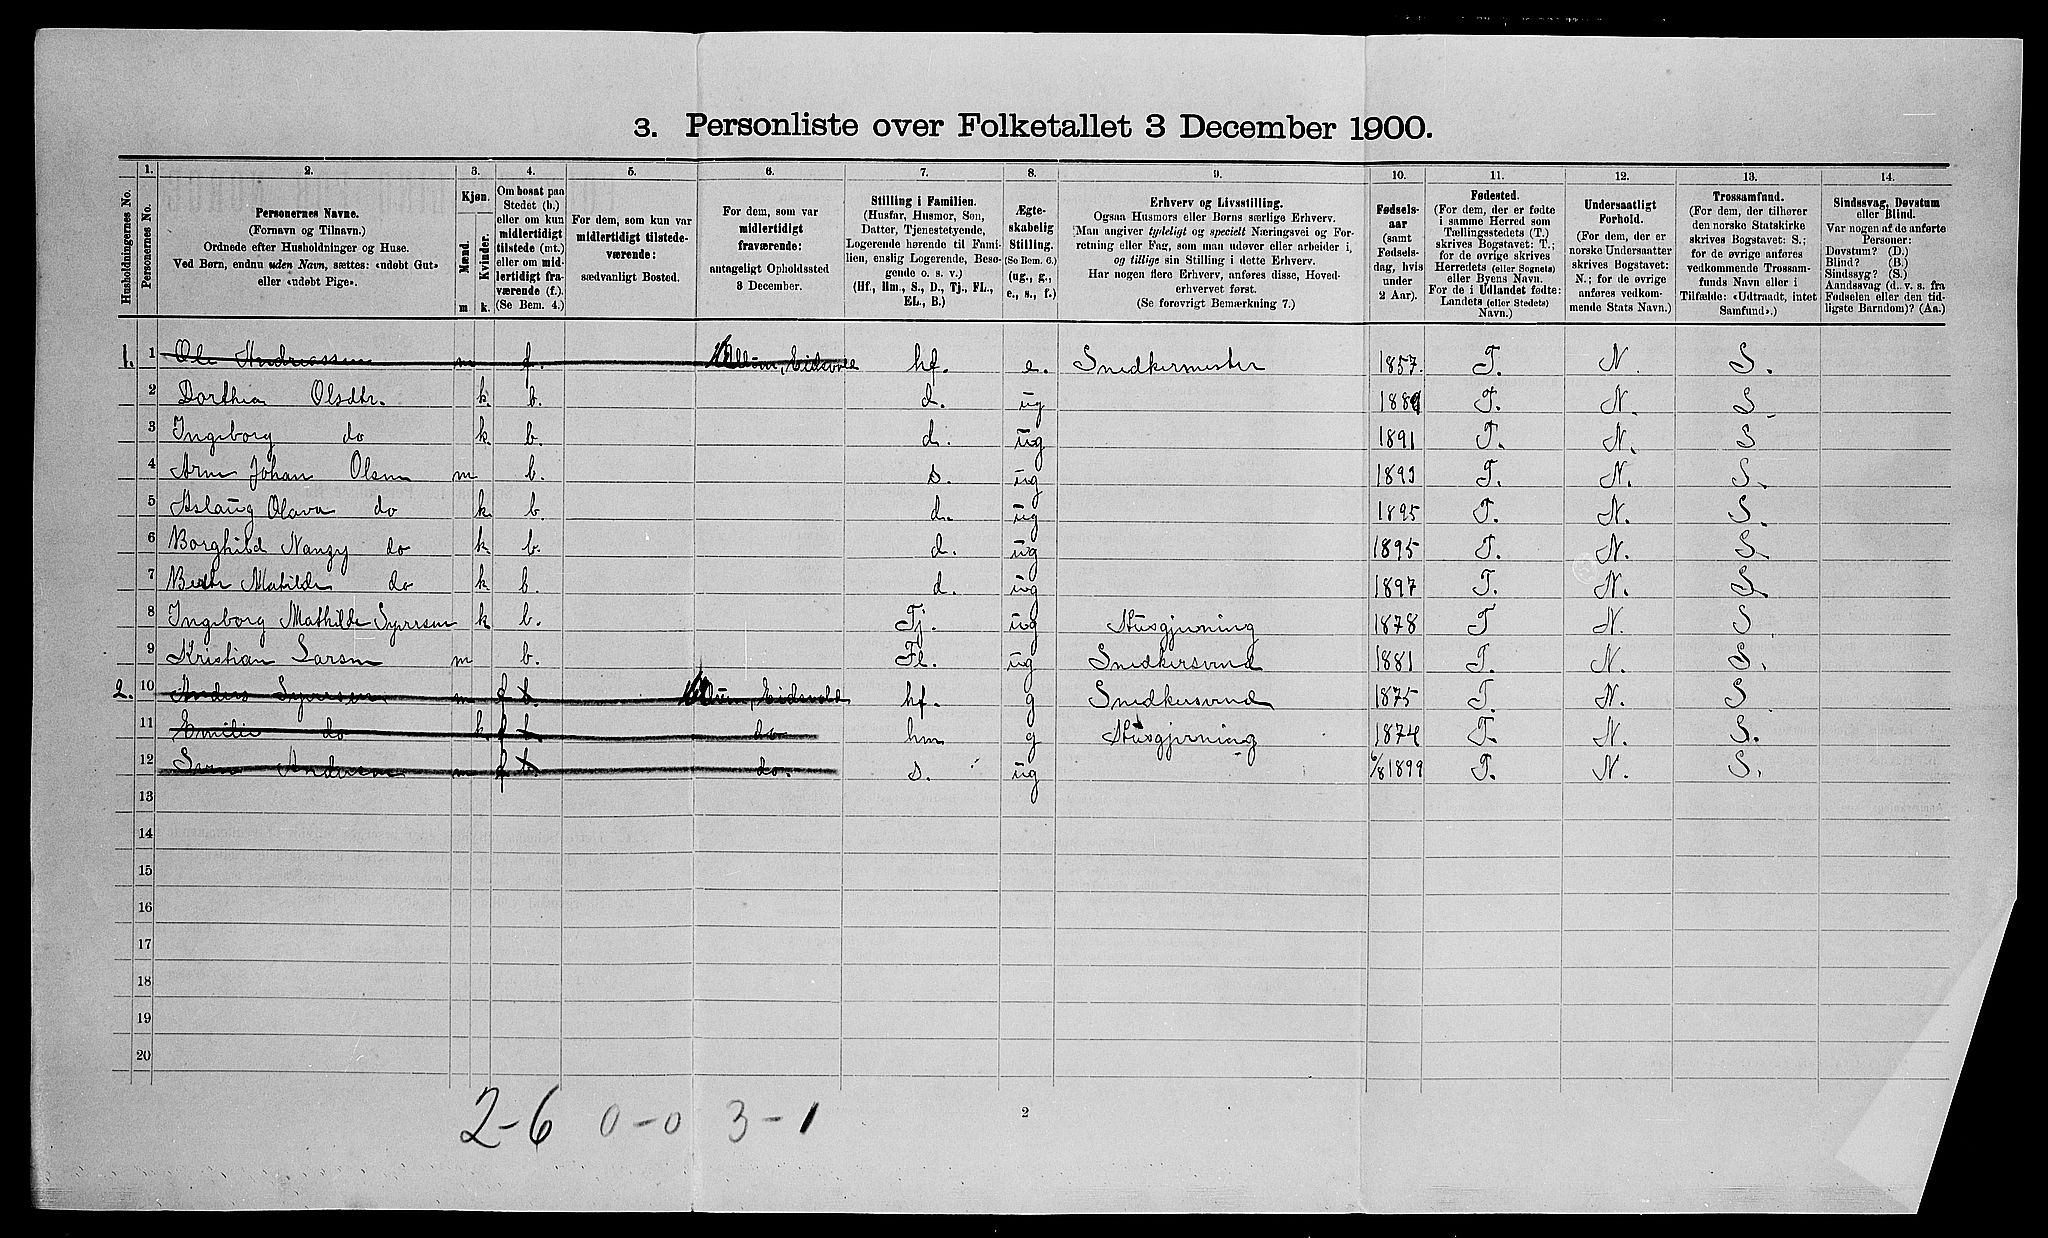 3. Personliste over Folketallet 3 December 1900.
Husholdningernes No.
1. Personernes No.
2. Personernes Navne. (Fornavn og Tilnavn.) Ordnede efter Husholdninger og Huse. Ved Børn, endnu uden Navn, sættes: «udøbt Gut» eller «udøbt Pige».
3. Kjøn. Mænd. m Kvinder. k.
4. Om bosat paa Stedet (b.) eller om kun midlertidigt tilstede (mt.) eller om midlertidigt fraværende (f.). (Se Bem. 4.)
5. For dem, som kun var midlertidigt tilstedeværende: sædvanligt Bosted.
6. For dem, som var midlertidigt fraværende: antageligt Opholdssted 3 December.
7. Stilling i Familien. (Husfar, Husmor, Søn, Datter, Tjenestetyende, Logerende hørende til Familien, enslig Logerende, Besøgende o. s. v.) (Hf., Hm., S., D., Tj., FL., EL., B.)
8. Ægteskabelig Stilling. (Se Bem. 6.) (ug., g., e., s., f.)
9. Erhverv og Livsstilling. Ogsaa Husmors eller Børns særlige Erhverv. Man angiver tydeligt og specielt Næringsvei og Forretning eller Fag, som man udøver eller arbeider i, og tillige sin Stilling i dette Erhverv. Har nogen flere Erhverv, anføres disse, Hovederhvervet først. (Se forøvrigt Bemærkning 7.)
10. Fødselsaar (samt Fødselsdag, hvis under 2 Aar).
11. Fødested. (For dem, der er fødte i samme Herred som Tællingsstedets (T.) skrives Bogstavet: T.; for de øvrige skrives Herredets (eller Sognets) eller Byens Navn. For de i Udlandet fødte: Landets (eller Stedets) Navn.)
12. Undersaatligt Forhold. (For dem, der er norske Undersaatter skrives Bogstavet: N.; for de øvrige anføres vedkommende Stats Navn.)
13. Trossamfund. (For dem, der tilhører den norske Statskirke skrives Bogstavet: S.; for de øvrige anføres vedkommende Trossamfunds Navn eller i Tilfælde: «Udtraadt, intet Samfund».)
14. Sindssvag, Døvstum eller Blind. Var nogen af de anførte Personer: Døvstum? (D.) Blind? (B.) Sindssyg? (S.) Aandssvag (d. v. s. fra Fødselen eller den tidligste Barndom)? (Aa.)
1. 1 Ole Andreassen m f. Eidsvold hf. e. Snedkermester 1857. T. N. S.
2 Dorthea Olsdtr. k. b. d. ug T. N. S.
3 Ingeborg do k. b. d. ug 1891 T. N. S
4 Arne Johan Olsen m b. s. ug 1893 T. N. S.
5 Aslaug Olava do k b. d. ug 1895 T. N. S.
6 Borghild Nanzy do k. b. d. ug 1895 T. N. S.
7 Matilde do k b. d. ug 1897 T. N. S
8 Ingeborg Mathilde Syversen k b. Tj. ug Husgjerning 1878 T N. S
9 Kristian Larsen m b. Fl. ug Snedkersvend 1881 T. N. S.
2. 10 Anders Syversen m f b. Eidsvold hf. g Snedkersvend 1875 T. N. S
11 Emilie do k f b. do hm g Husgjerning 1874 T. N. S.
12 Andersen m f b. do. s. ug 6/8 1899 T. N. S.
13
14
15
16
17
18
19
20
2-6 0-0 3-1
2